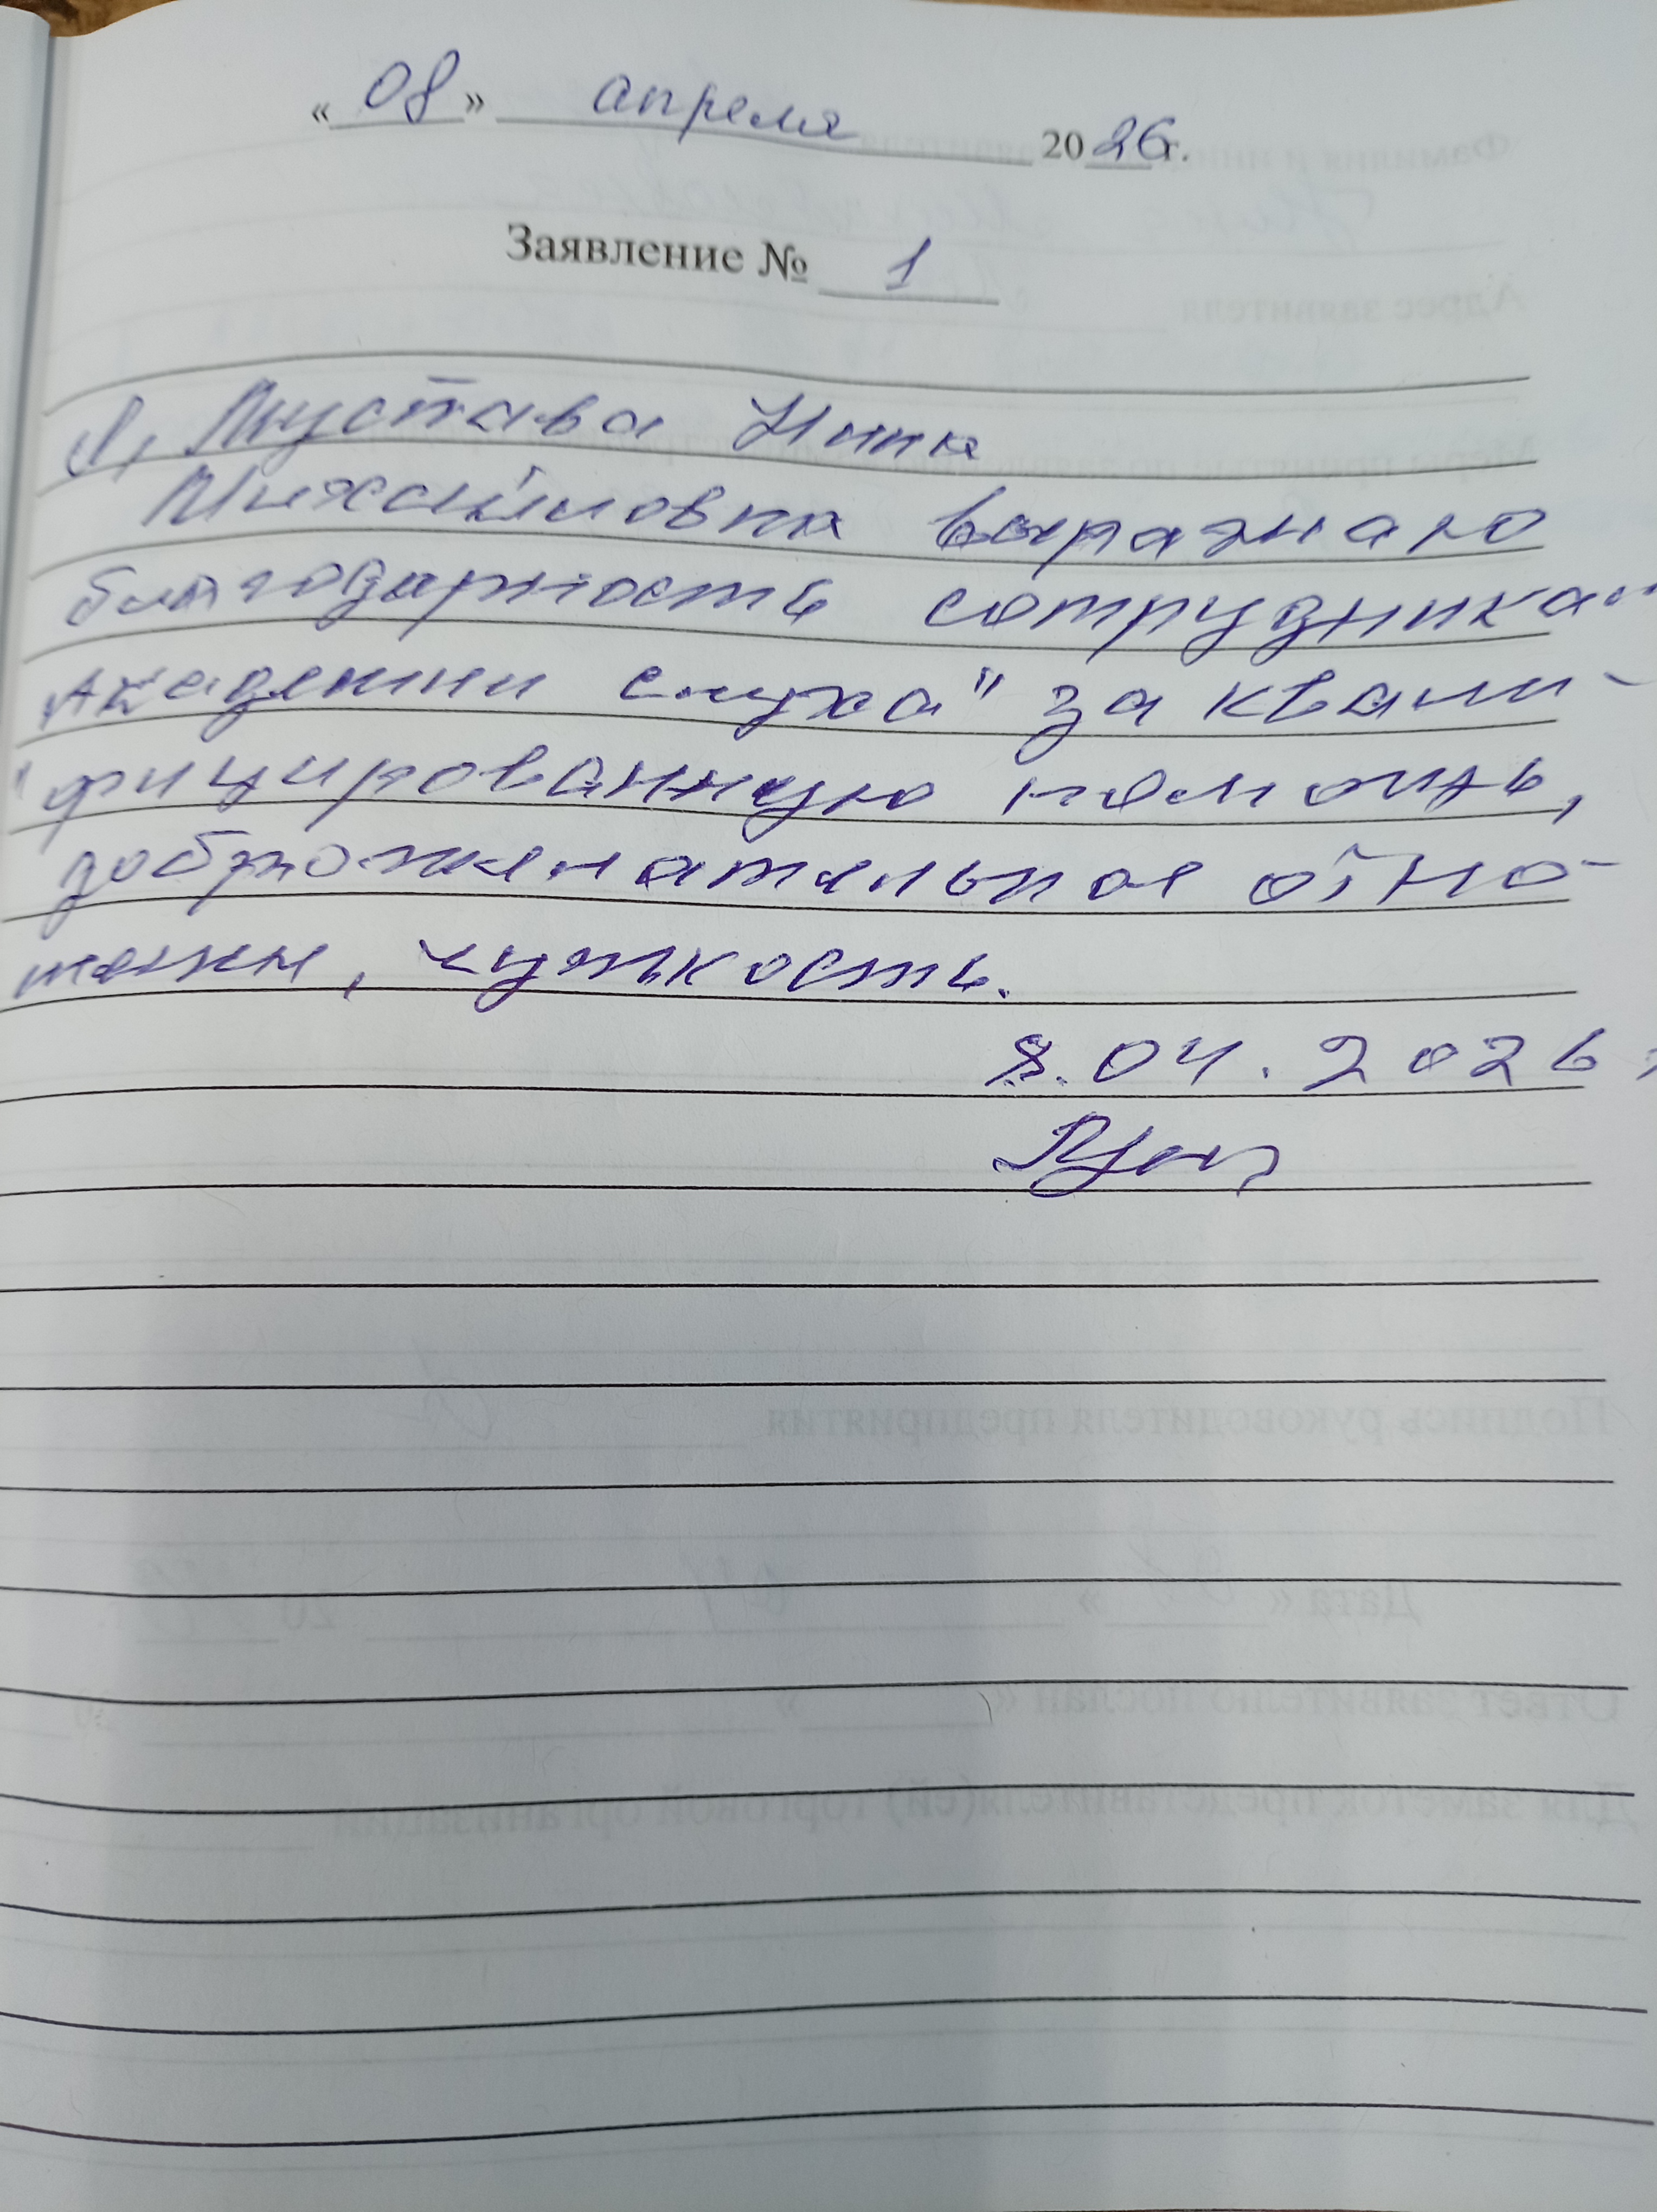 « 08 » апреля 2026г.
Заявление № 1
Я, Мустава Нина
Михайловна выражаю
благодарность сотрудникам
"Академии слуха" за квали-
фицированную помощь,
доброжелательное отно-
шение, чуткость.
8.04.2026г